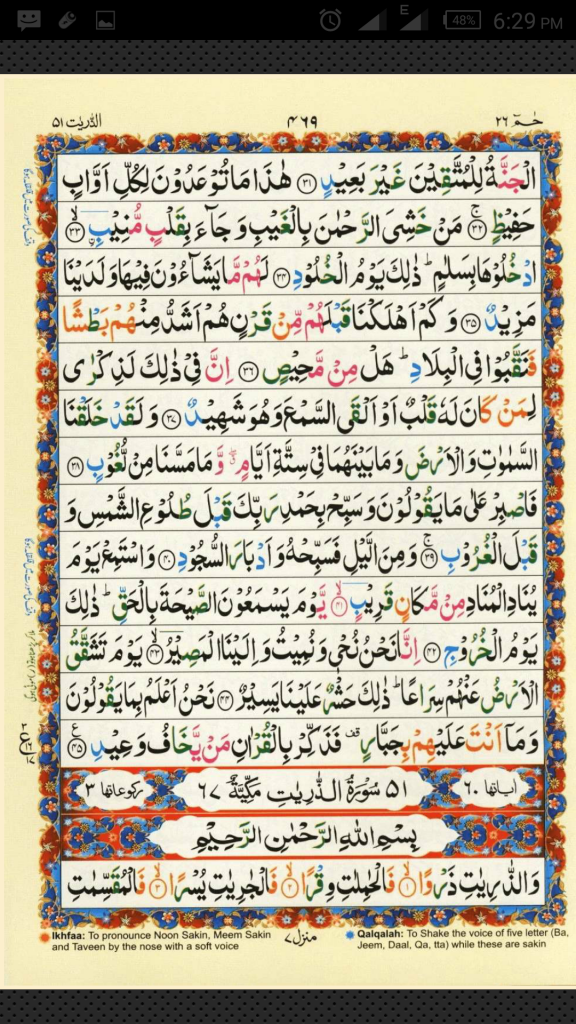 48% 6:29 PM
E
حٰمٓ ٢٦
٤٦٩
الذّٰرِيٰت ٥١
الْجَنَّةُ لِلْمُتَّقِيْنَ غَيْرَ بَعِيْدٍ ﴿٣١﴾ هٰذَا مَا تُوْعَدُوْنَ لِكُلِّ اَوَّابٍ
حَفِيْظٍ ۚ﴿٣٢﴾ مَنْ خَشِىَ الرَّحْمٰنَ بِالْغَيْبِ وَ جَآءَ بِقَلْبٍ مُّنِيْبِ ۙ﴿٣٣﴾
ادْخُلُوْهَا بِسَلٰمٍ ؕ ذٰلِكَ يَوْمُ الْخُلُوْدِ ﴿٣٤﴾ لَهُمْ مَّا يَشَآءُوْنَ فِيْهَا وَلَدَيْنَا
مَزِيْدٌ ﴿٣٥﴾ وَ كَمْ اَهْلَكْنَا قَبْلَهُمْ مِّنْ قَرْنٍ هُمْ اَشَدُّ مِنْهُمْ بَطْشًا
فَنَقَّبُوْا فِى الْبِلَادِ ؕ هَلْ مِنْ مَّحِيْصٍ ﴿٣٦﴾ اِنَّ فِىْ ذٰلِكَ لَذِكْرٰى
لِمَنْ كَانَ لَهٗ قَلْبٌ اَوْ اَلْقَى السَّمْعَ وَهُوَ شَهِيْدٌ ﴿٣٧﴾ وَ لَقَدْ خَلَقْنَا
السَّمٰوٰتِ وَالْاَرْضَ وَ مَا بَيْنَهُمَا فِىْ سِتَّةِ اَيَّامٍ ۖ وَّ مَا مَسَّنَا مِنْ لُّغُوْبٍ ﴿٣٨﴾
فَاصْبِرْ عَلٰى مَا يَقُوْلُوْنَ وَ سَبِّحْ بِحَمْدِ رَبِّكَ قَبْلَ طُلُوْعِ الشَّمْسِ وَ
قَبْلَ الْغُرُوْبِ ۚ﴿٣٩﴾ وَ مِنَ الَّيْلِ فَسَبِّحْهُ وَ اَدْبَارَ السُّجُوْدِ ﴿٤٠﴾ وَاسْتَمِعْ يَوْمَ
يُنَادِ الْمُنَادِ مِنْ مَّكَانٍ قَرِيْبٍ ۙ﴿٤١﴾ يَّوْمَ يَسْمَعُوْنَ الصَّيْحَةَ بِالْحَقِّ ؕ ذٰلِكَ
يَوْمُ الْخُرُوْجِ ﴿٤٢﴾ اِنَّا نَحْنُ نُحْىٖ وَ نُمِيْتُ وَ اِلَيْنَا الْمَصِيْرُ ۙ﴿٤٣﴾ يَوْمَ تَشَقَّقُ
الْاَرْضُ عَنْهُمْ سِرَاعًا ؕ ذٰلِكَ حَشْرٌ عَلَيْنَا يَسِيْرٌ ﴿٤٤﴾ نَحْنُ اَعْلَمُ بِمَا يَقُوْلُوْنَ
وَ مَاۤ اَنْتَ عَلَيْهِمْ بِجَبَّارٍ قف فَذَكِّرْ بِالْقُرْاٰنِ مَنْ يَّخَافُ وَعِيْدِ ﴿٤٥﴾
اٰيَاتها ٦٠
٥١ سُوْرَةُ الذّٰرِيٰتِ مَكِّيَّةٌ ٦٧
ركوعاتها ٣
بِسْمِ اللّٰهِ الرَّحْمٰنِ الرَّحِيْمِ
وَالذّٰرِيٰتِ ذَرْوًا ۙ﴿١﴾ فَالْحٰمِلٰتِ وِقْرًا ۙ﴿٢﴾ فَالْجٰرِيٰتِ يُسْرًا ۙ﴿٣﴾ فَالْمُقَسِّمٰتِ
Ikhfaa: To pronounce Noon Sakin, Meem Sakin
and Taveen by the nose with a soft voice
منزل ٧
Qalqalah: To Shake the voice of five letter (Ba,
Jeem, Daal, Qa, tta) while these are sakin